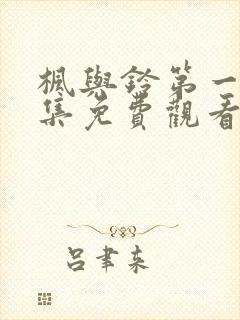 楓與鈴第一
集免費觀看
呂聿來